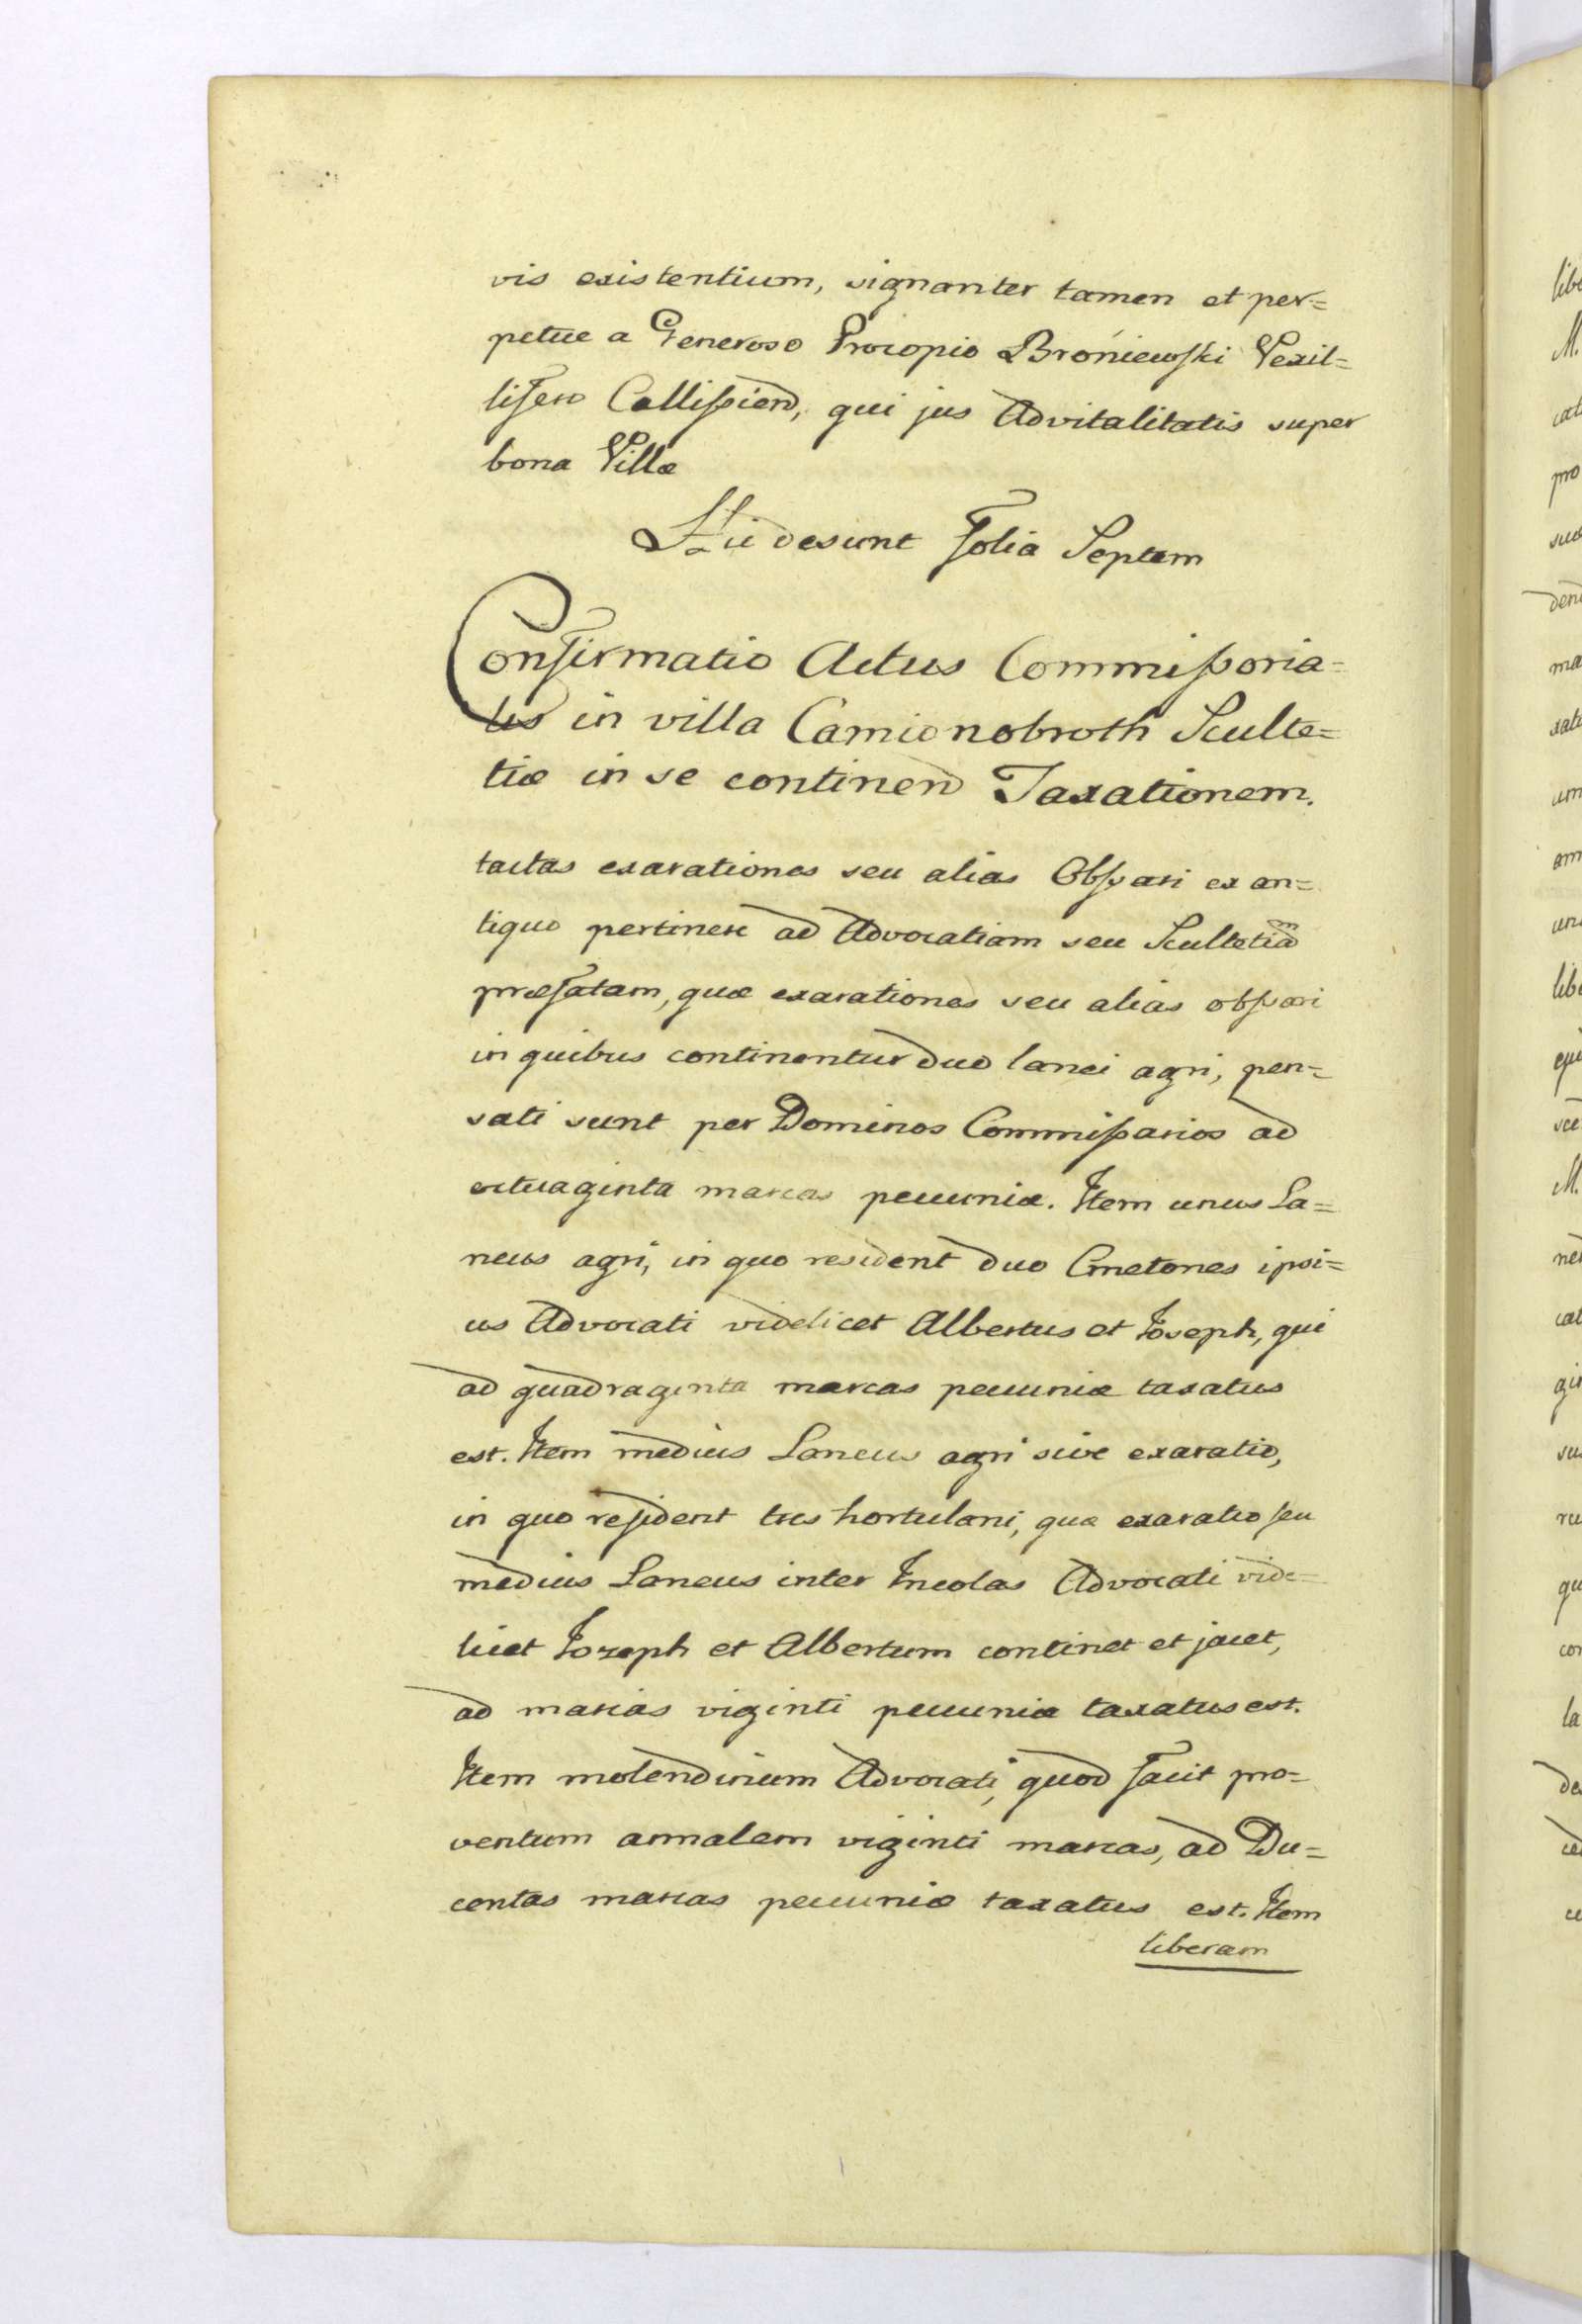 vis existentium, signanter tamen et per=
petue a Generoso Procopio Broniewski Vexil=
lifero Callissien, qui jus Advitalitatis super
bona Villæ
Hic desunt Folia Septem
Confirmatio Actus Commissoria=
lis in villa Camionobroth Sculte=
tiæ in se continen Taxationem.
tactas exarationes seu alias Obszari ex an=
tiquo pertinere ad Advocatiam seu Scultetiam
præfatam, quæ exarationes seu alias obszari
in quibus continentur duo lanei agri, pen=
sati sunt per Dominos Commissarios ad
octuaginta marcas pecuniæ. Item unus La=
neus agri, in quo resident duo Cmetones ipsi=
us Advocati videlicet Albertus et Joseph, qui
ad quadraginta marcas pecuniæ taxatus
est. Item medius Laneus agri sive exaratio,
in quo resident tres hortulani, quæ exaratio seu
medius Laneus inter Incolas Advocati vide=
licet Jozeph et Albertum continet et jacet,
ad marcas viginti pecuniæ taxatus est.
Item molendinum Advocati, quod facit pro=
ventum annalem viginti marcas, ad Du=
centas marcas pecuniæ taxatus est. Item
liberam